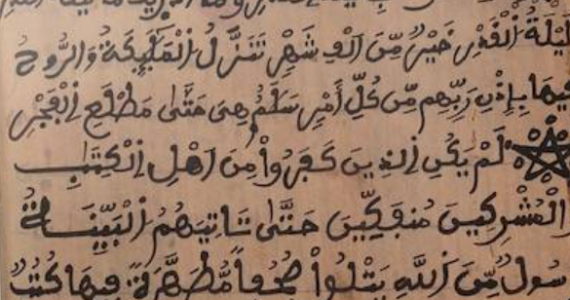 لَيْلَةُ اَ۬لْقَدْرِ خَيْرٌ مِّنَ اَلْفِ شَهْرٍ تَنَزَّلُ اُ۬لْمَلَٰٓئِكَةُ وَالرُّوحُ
فِيهَا بِإِذْنِ رَبِّهِم مِّن كُلِّ أَمْرٍ سَلَٰمٌ هِيَ حَتَّىٰ مَطْلَعِ اِ۬لْفَجْرِ
لَمْ يَكُنِ اِ۬لذِينَ كَفَرُواْ مِنَ اَهْلِ اِ۬لْكِتَٰبِ
الْمُشْرِكِينَ مُنفَكِّينَ حَتَّىٰ تَاتِيَهُمُ اُ۬لْبَيِّنَةُ
سُولٌ مِّنَ اَ۬للَّهِ يَتْلُواْ صُحُفاً مُّطَهَّرَةً فِيهَا كُتُبٌ